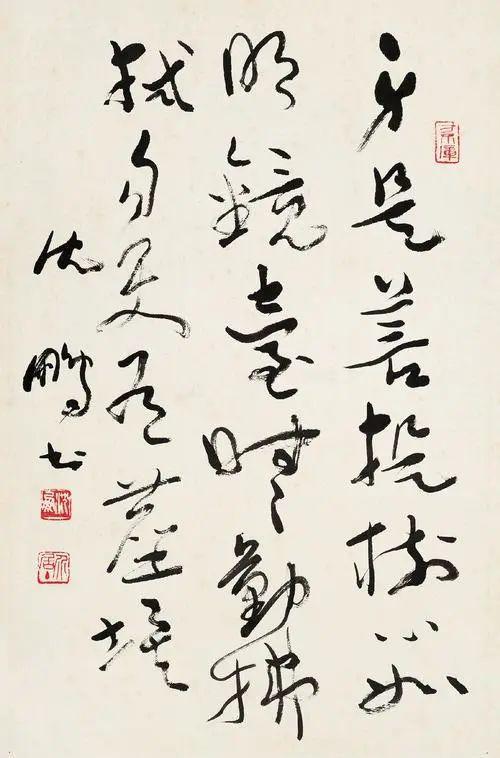 身是菩提樹心如
明鏡臺時〻勤拂
拭勿使有塵埃
沈鵬书